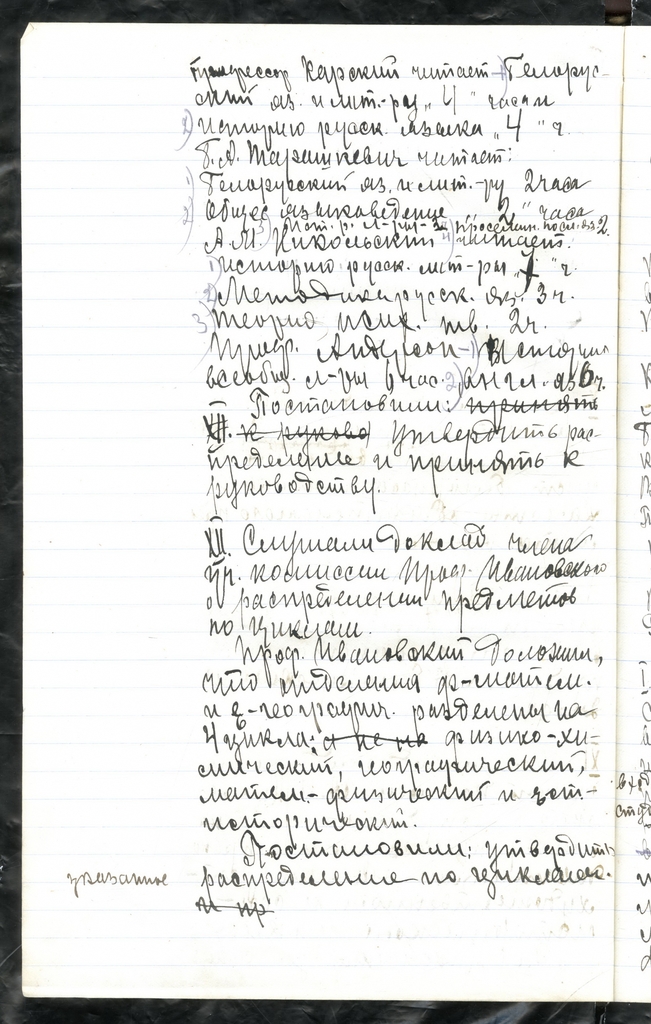 Профессор Карский читает 1) Белорус-
ский яз. и лит-ру „4" часам
2) историю русск. языка „4" ч.
Б. А. Тарашкевич читает:
1) Белорусский яз. и лит.-ру 2 часа
2) Общее языковедение „2" часа
3) ист. р. л-ры - 2 4) просемин. посл. яз. 2.
А. М. Никольский читает.
1) историю русск. лит-ры „7" ч.
2) Методика русск. яз. 3 ч.
3) теорию псих. тв. 2 ч.
Проф. Андерсон 1) История
всеобщ. л-ры 6 час. 2) англ. яз 6 ч.
Постановили: принять
XII. к руково утвердить рас-
пределение и принять к
руководству.
XII. Слушали доклад члена
пр. комиссии Проф. Ивановского
о распределении предметов
по циклам.
Проф. Ивановский доложил,
что отделения ф-матем.
и е-географич. разделены на
4 цикла: а не на физико-хи-
мический, географический,
матем.-физический и ест-
исторический.
Постановили: утвердить
указанное
распределение по циклам.
и пр